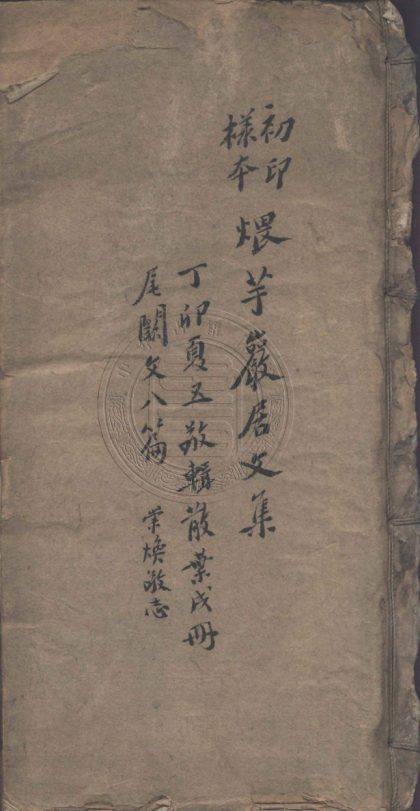 初印
樣本
煨芋巖居文集
丁卯夏五敬輯散葉成冊
尾闕文八篇
崇煥敬志